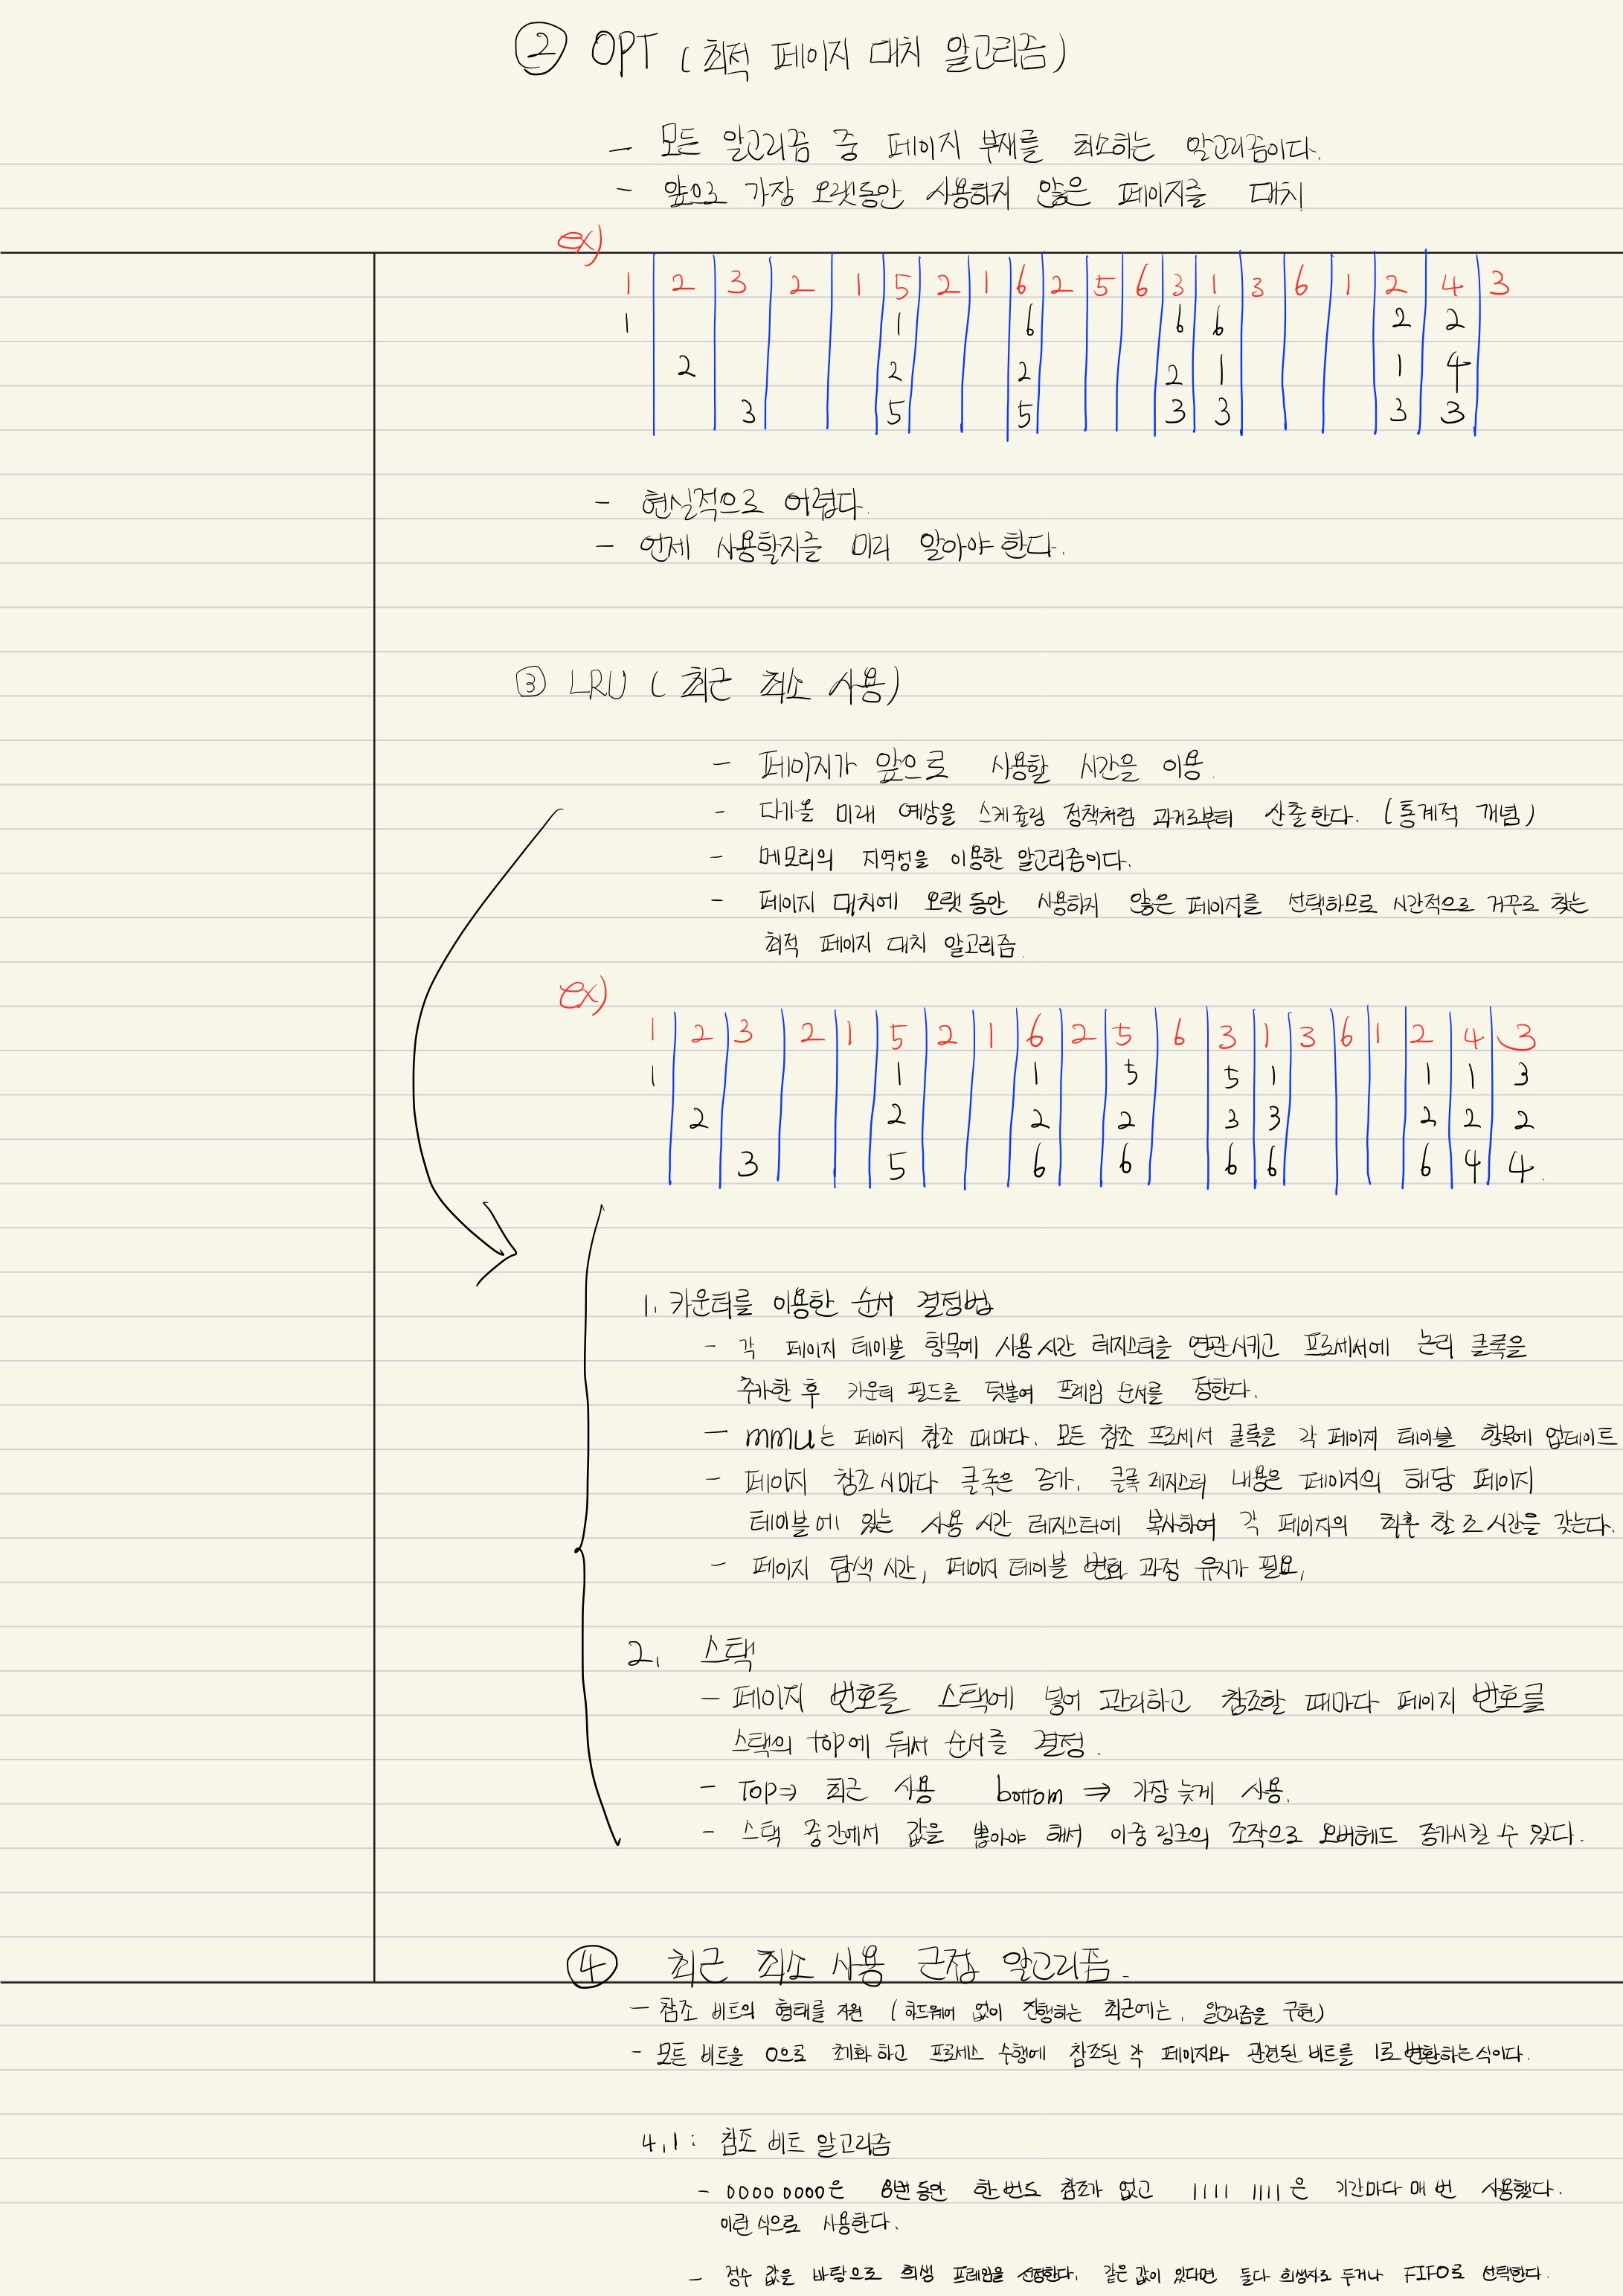 ② OPT (최적 페이지 대치 알고리즘)
- 모든 알고리즘 중 페이지 부재를 최소하는 알고리즘이다.
- 앞으로 가장 오랫동안 사용하지 않은 페이지를 대치
ex)
1 2 3 2 1 5 2 1 6 2 5 6 3 1 3 6 1 2 4 3
1 1 6 6 6 2 2
2 2 2 2 1 1 4
3 5 5 3 3 3 3
- 현실적으로 어렵다.
- 언제 사용할지를 미리 알아야 한다.
③ LRU (최근 최소 사용)
- 페이지가 앞으로 사용할 시간을 이용.
- 다가올 미래 예상을 스케줄링 정책처럼 과거로부터 산출한다. (통계적 개념)
- 메모리의 지역성을 이용한 알고리즘이다.
- 페이지 대치에 오랫동안 사용하지 않은 페이지를 선택하므로 시간적으로 거꾸로 찾는
최적 페이지 대치 알고리즘.
ex)
1 2 3 2 1 5 2 1 6 2 5 6 3 1 3 6 1 2 4 3
1 1 1 5 5 1 1 1 3
2 2 2 2 3 3 2 2 2
3 5 6 6 6 6 6 4 4.
1. 카운터를 이용한 순서 결정법
- 각 페이지 테이블 항목에 사용 시간 레지스터를 연관시키고 프로세서에 논리 클록을
추가한 후 카운터 필드를 덧붙여 프레임 순서를 정한다.
- mmu는 페이지 참조 때마다. 모든 참조 프로세서 클록을 각 페이지 테이블 항목에 업데이트
- 페이지 참조 시마다 클록은 증가. 클록 레지스터 내용은 페이지의 해당 페이지
테이블에 있는 사용 시간 레지스터에 복사하여 각 페이지의 최후 참조 시간을 갖는다.
- 페이지 탐색 시간, 페이지 테이블 변화 과정 유지가 필요,
2. 스택
- 페이지 번호를 스택에 넣어 관리하고 참조할 때마다 페이지 번호를
스택의 top에 둬서 순서를 결정.
- Top⇒ 최근 사용 bottom ⇒ 가장 늦게 사용.
- 스택 중간에서 값을 뽑아야 해서 이중 링크의 조작으로 오버헤드 증가시킬 수 있다.
④ 최근 최소 사용 근접 알고리즘.
- 참조 비트의 형태를 지원 (하드웨어 없이 진행하는 최근에는, 알고리즘을 구현)
- 모든 비트을 0으로 초기화 하고 프로세스 수행에 참조된 각 페이지와 관련된 비트를 1로 변환하는 식이다.
4.1: 참조 비트 알고리즘
- 0000 0000은 8번 동안 한 번도 참조가 없고 1111 1111은 기간마다 매 번 사용했다.
이런 식으로 사용한다.
- 정수 값을 바탕으로 희생 프레임을 선정한다. 같은 값이 있다면 둘다 희생자로 두거나 FIFO로 선택한다.